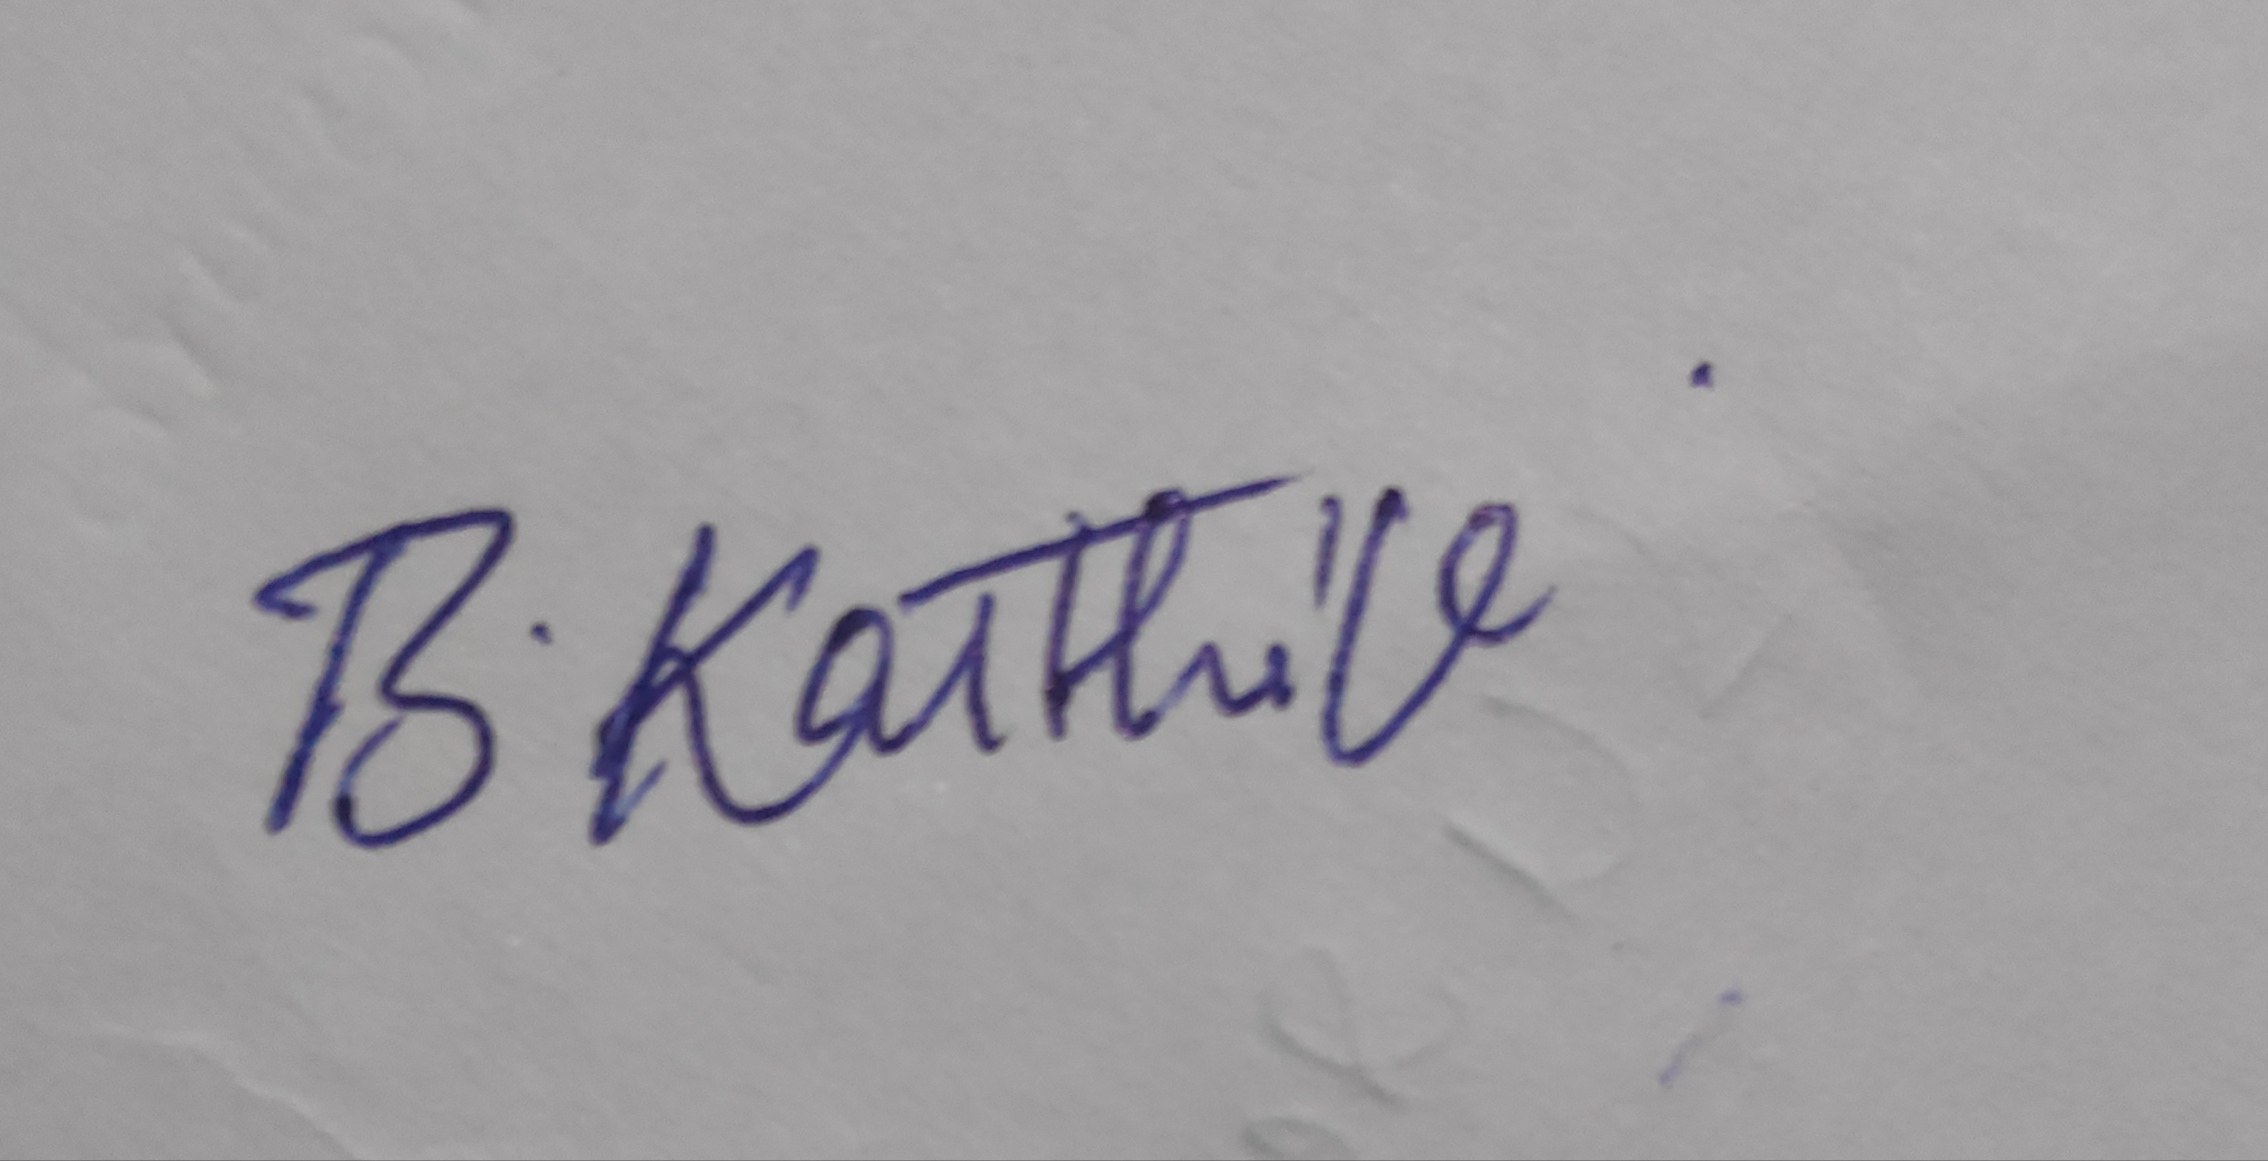 B. Karthik